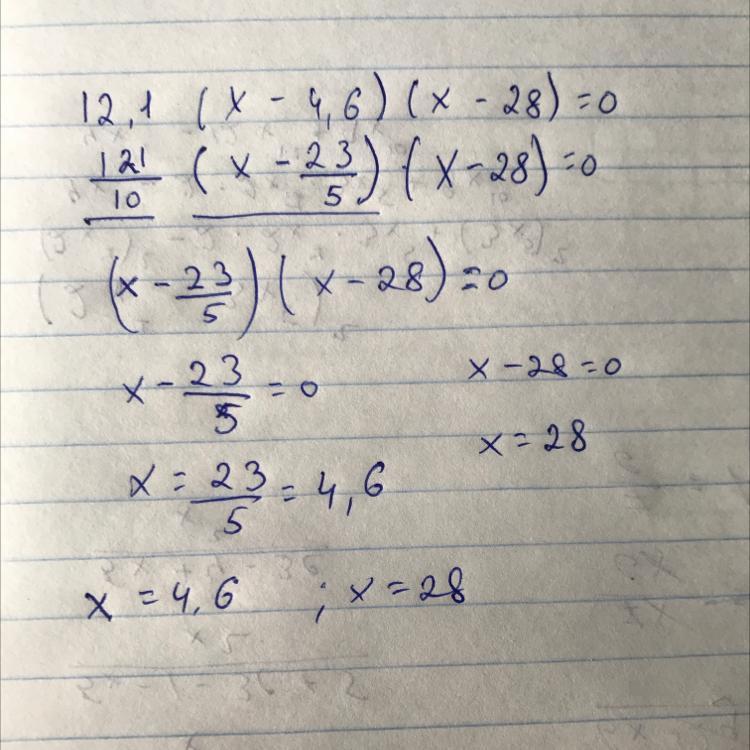 12,1 (x - 4,6) (x - 28) = 0
121/10 (x - 23/5) (x - 28) = 0
(x - 23/5) (x - 28) = 0
x - 23/5 = 0 x - 28 = 0
x = 28
x = 23/5 = 4,6
x = 4,6 ; x = 28